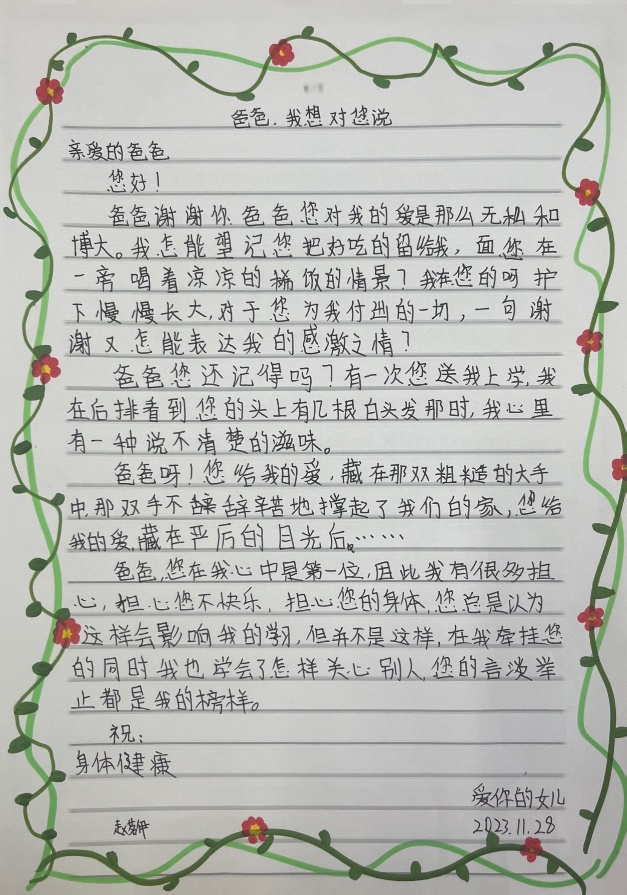 爸爸.我想对您说
亲爱的爸爸
您好!
爸爸谢谢你爸爸您对我的爱是那么无私和
博大。我怎能望记您把好吃的留给我,面您在
一旁喝着凉凉的稀饭的情景?我在您的呵护
下慢慢长大,对于您为我付出的一切,一句谢
谢又怎能表达我的感激之情?
爸爸您还记得吗?有一次您送我上学,我
在后排看到您的头上有几根白头发那时,我心里
有一种说不清楚的滋味。
爸爸呀!您给我的爱,藏在那双粗糙的大手
中,那双手不辞辞辛苦地撑起了我们的家,您给
我的爱,藏在严厉的目光后。……
爸爸,您在我心中是第一位,因此我有很多担
心,担心您不快乐,担心您的身体,您总是认为
这样会影响我的学习,但并不是这样,在我牵挂您
的同时我也学会了怎样关心别人,您的言谈举
止都是我的榜样。
祝:
身体健康
爱你的女儿
2023.11.28